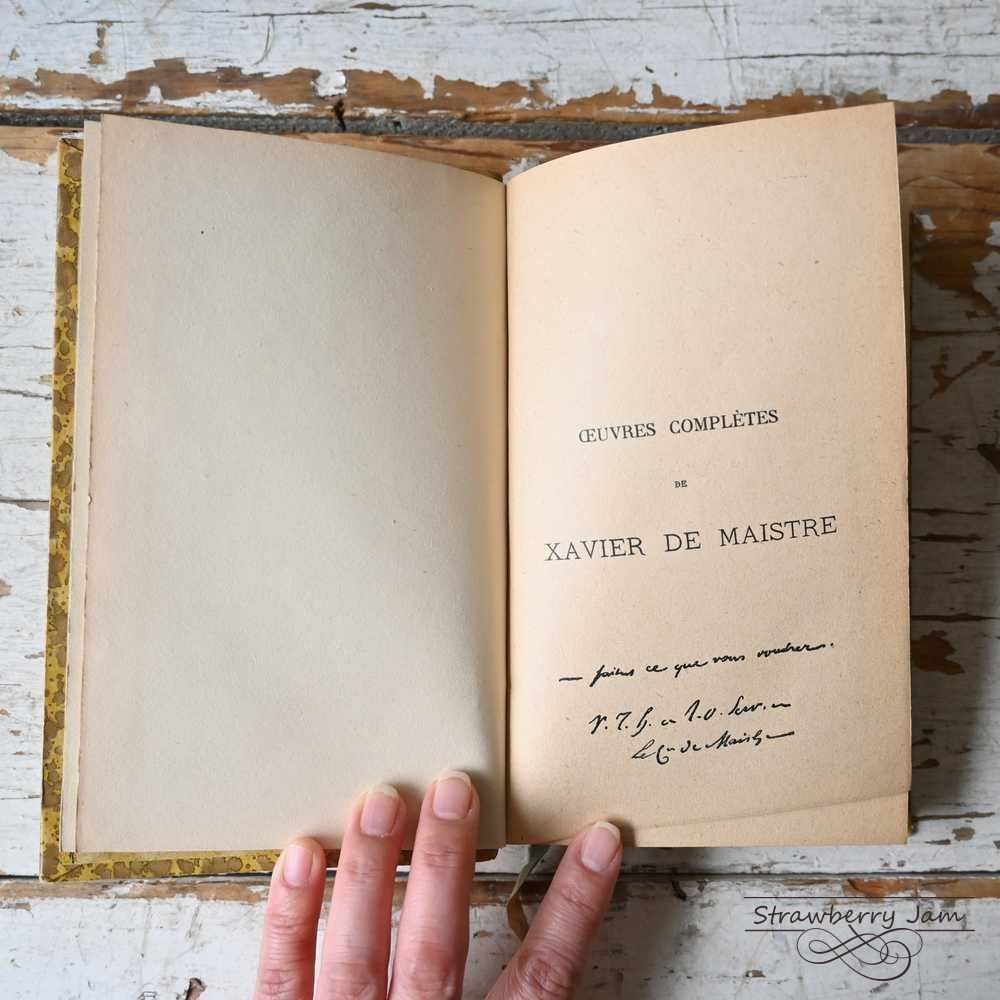 ŒUVRES COMPLÈTES
DE
XAVIER DE MAISTRE
— faites ce que vous voudrez.
V. T. h. et t. o. Serv.
Le Cte de Maistre
Strawberry Jam